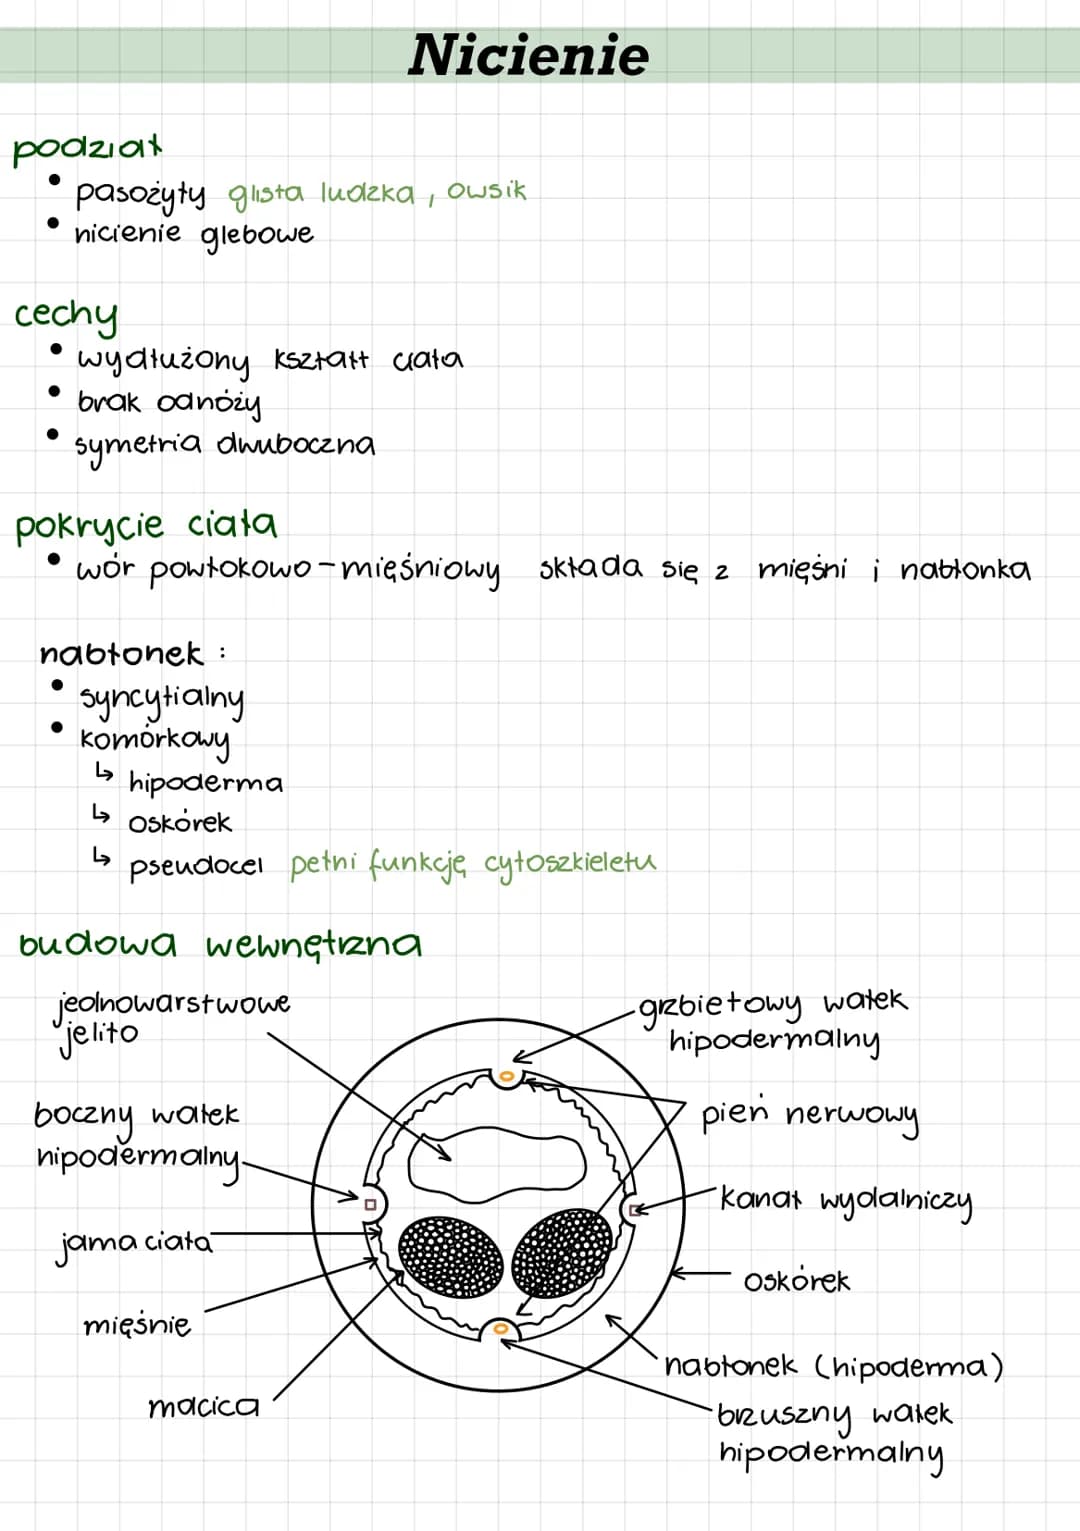 Nicienie
podział
• pasożyty glista ludzka, owsik
• nicienie glebowe
cechy
• wydłużony kształt ciała
• brak odnóży
• symetria dwuboczna
pokrycie ciała
• wór powłokowo-mięśniowy składa się z mięśni i nabłonka
nabłonek :
• syncytialny
• komórkowy
↳ hipoderma
↳ oskórek
↳ pseudocel pełni funkcję cytoszkieletu
budowa wewnętrzna
jednowarstwowe
jelito
grzbietowy wałek
hipodermalny
boczny wałek
hipodermalny
pień nerwowy
kanał wydalniczy
jama ciała
oskórek
mięśnie
nabłonek (hipoderma)
macica
brzuszny wałek
hipodermalny